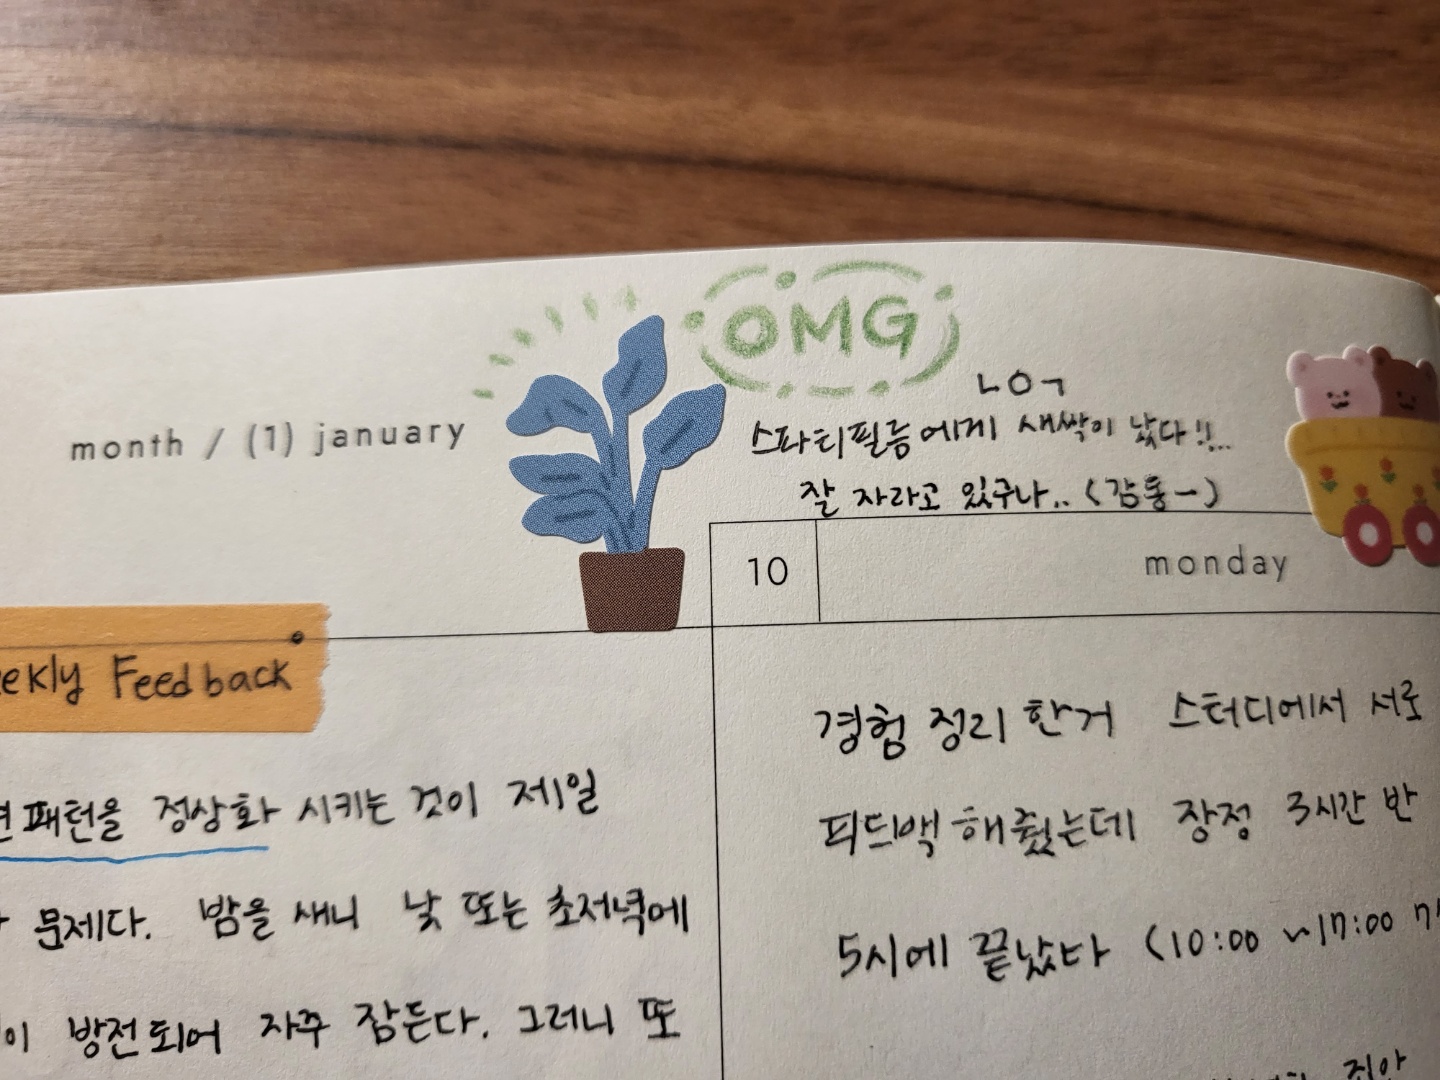 OMG
month / (1) january
ㄴㅇㄱ
스파티필름에게 새싹이 났다!!..
잘 자라고 있구나.. (감동ㅡ)
10 monday
Feedback
패턴을 정상화 시키는 것이 제일
문제다. 밤을 새니 낮 또는 초저녁에
방전되어 자주 잠든다. 그러니 또
경험 정리 한거 스터디에서 서로
피드백 해줬는데 장정 3시간 반
5시에 끝났다 (10:00 ~17:00